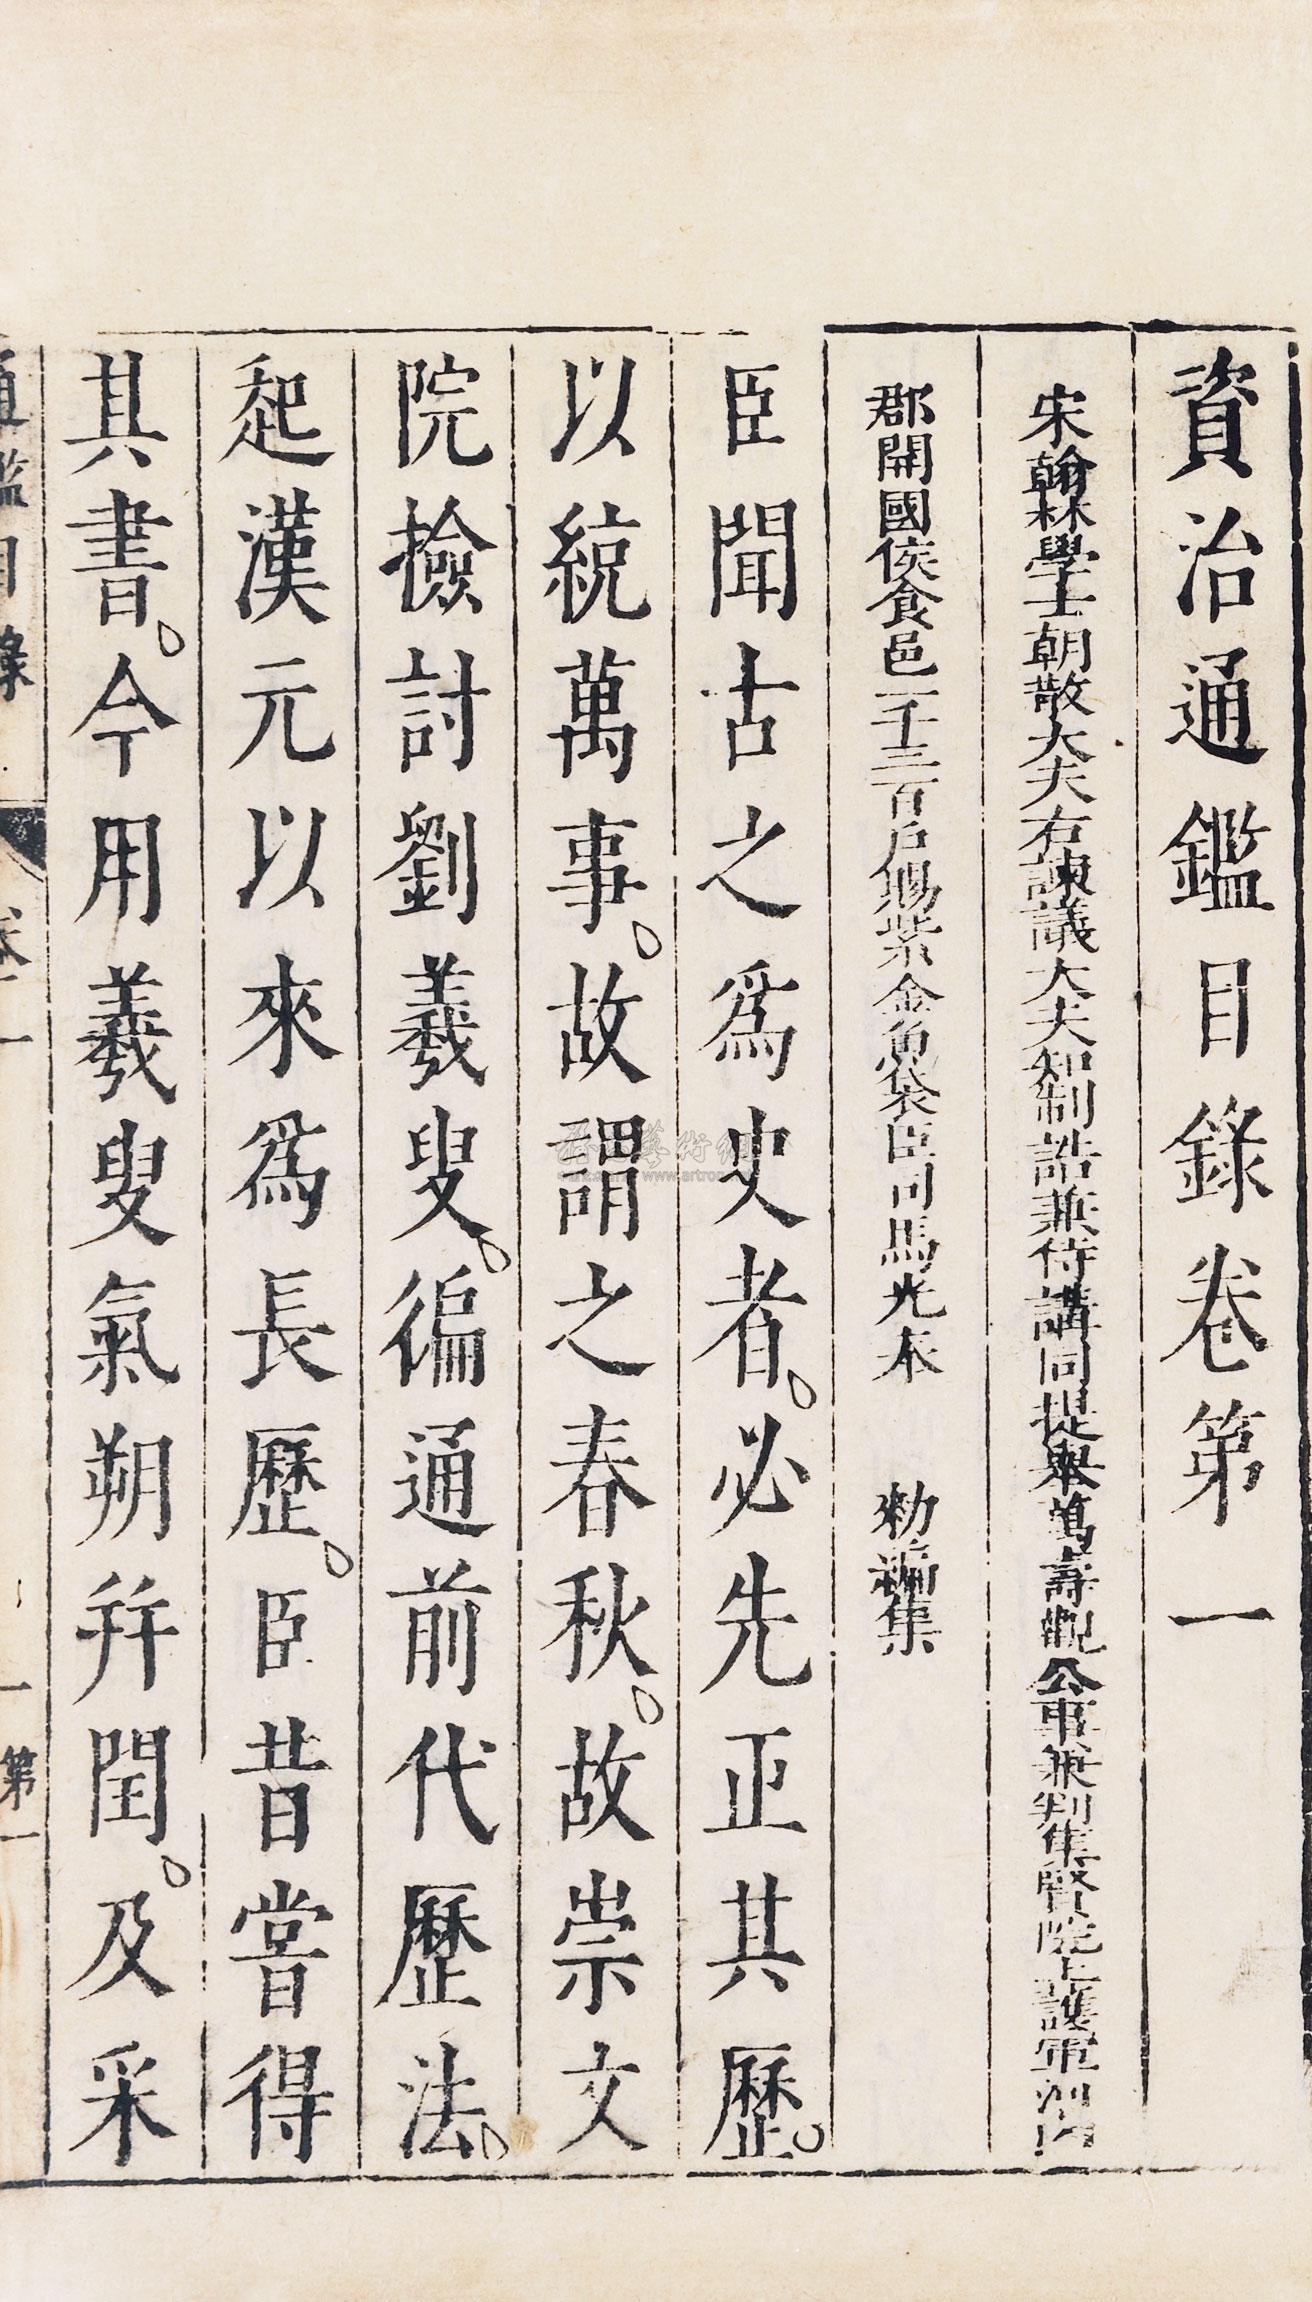 資治通鑑目錄卷第一
宋翰林學士朝散大夫右諫議大夫知制誥兼侍講同提舉萬壽觀公事兼判集賢院上護軍河內
郡開國侯食邑一千三百戶賜紫金魚袋臣司馬光奉 勑編集
臣聞古之爲史者。必先正其歷。
以統萬事。故謂之春秋。故崇文
院撿討劉羲叟。徧通前代歷法。
起漢元以來爲長歷。臣昔嘗得
其書。今用羲叟氣朔并閏。及采
通鑑目錄 卷一 一 第一